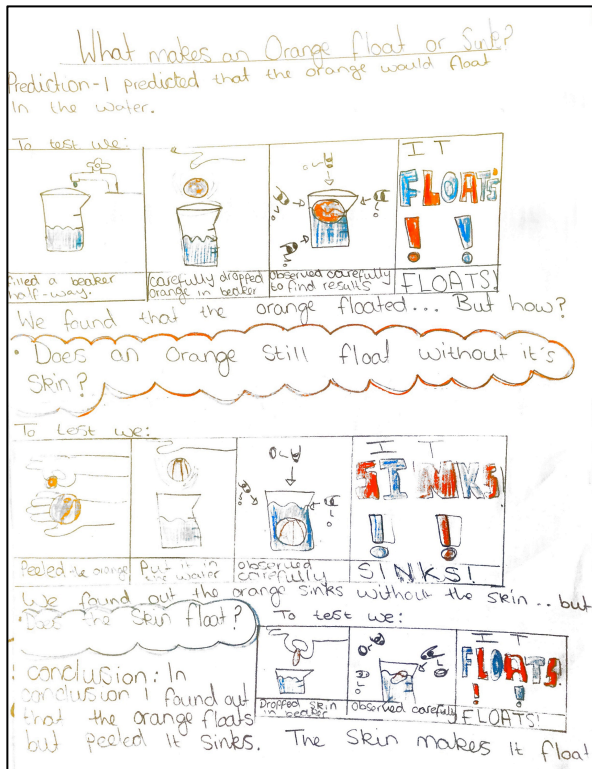 What makes an Orange float or Sink?
Prediction-I predicted that the orange would float
In the water.
To test we:
filled a beaker
half-way.
carefully dropped
orange in beaker
observed carefully
to find results
IT
FLOATS
!!
FLOATS!
We found that the orange floated... But how?
• Does an Orange Still float without it's
Skin?
To test we:
Peeled the orange
Put it in
the water
observed
carefully
IT
SINKS
!!
SINKS!
We found out the orange sinks without the skin... but
• Does the Skin float?
To test we:
Dropped skin
in beaker
observed carefully
IT
FLOATS
!!
FLOATS!
conclusion: In
conclusion I found out
that the orange floats
but peeled it sinks. The Skin makes it float